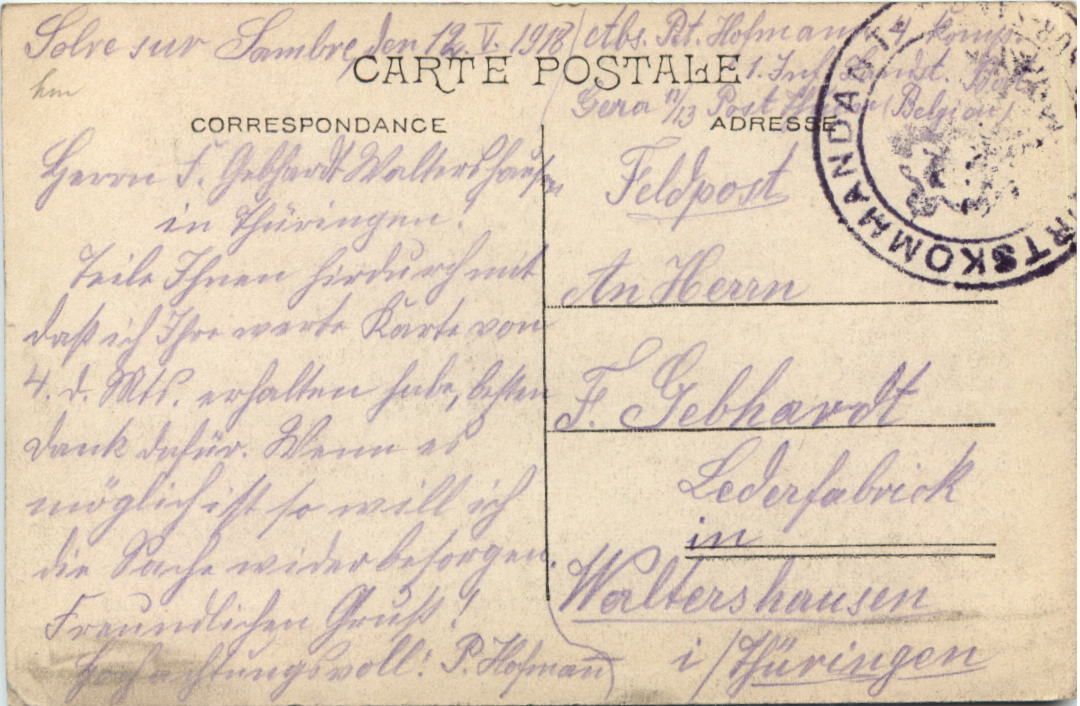 Solre sur Sambre, den 12. V. 1918
Abs. Pt. Hofmann 4 Komp.
1. Inf. Landst. Batl.
Gera 11/13 Post (Belgien)
CARTE POSTALE
CORRESPONDANCE
Herrn F. Gebhardt Waltershausen
in Thüringen!
Teile Ihnen hirdurch mit
daß ich Ihre werte Karte von
4. d. Mts. erhalten habe, besten
Dank dafür. Wenn es
möglich ist so will ich
die Sache wider besorgen.
Freundlichen Gruß!
Hochachtungsvoll! P. Hofmann
ADRESSE
Feldpost
An Herrn
F. Gebhardt
Lederfabrick
in
Waltershausen
i/Thüringen
ORTSKOMMANDANT